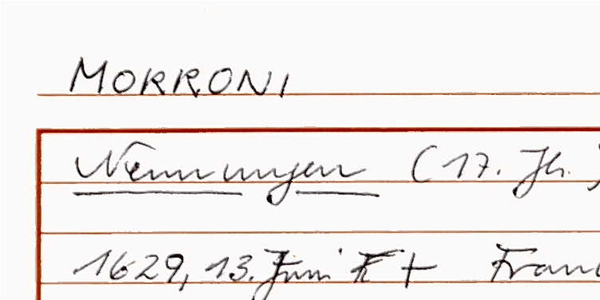 MORRONI
Nennungen (17. Jh.)
1629, 13. Juni + Fran